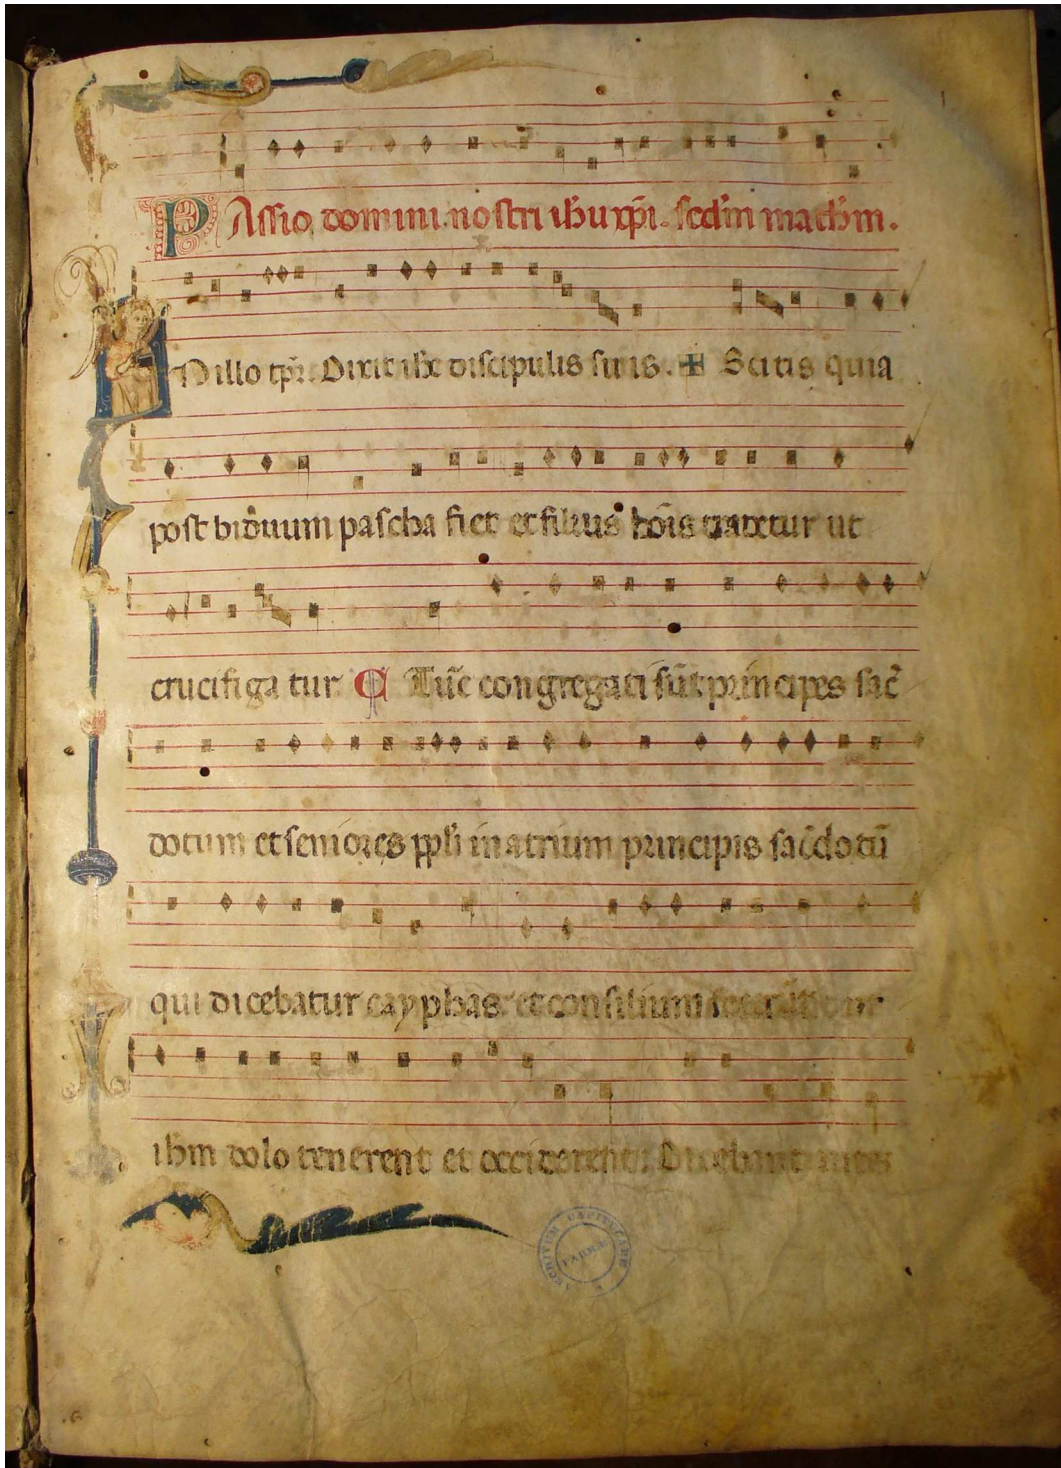 PAssio domini nostri ih̄u xp̄i. scd̄m math̄m.
IN illo tp̄r. Dixit ih̄c discipulis suis. + Scitis quia
post biduum pascha fiet et filius ho̅is tradetur ut
crucifiga tur C Tūc congregati sūt principes sac̄
dotum et seniores pp̄li in atrium principis sac̄dotū
qui dicebatur cayphas et consilium fecerunt ut
ihm dolo tenerent et occiderent. Dicebant autes
ARCHIVUM CAPITULARE